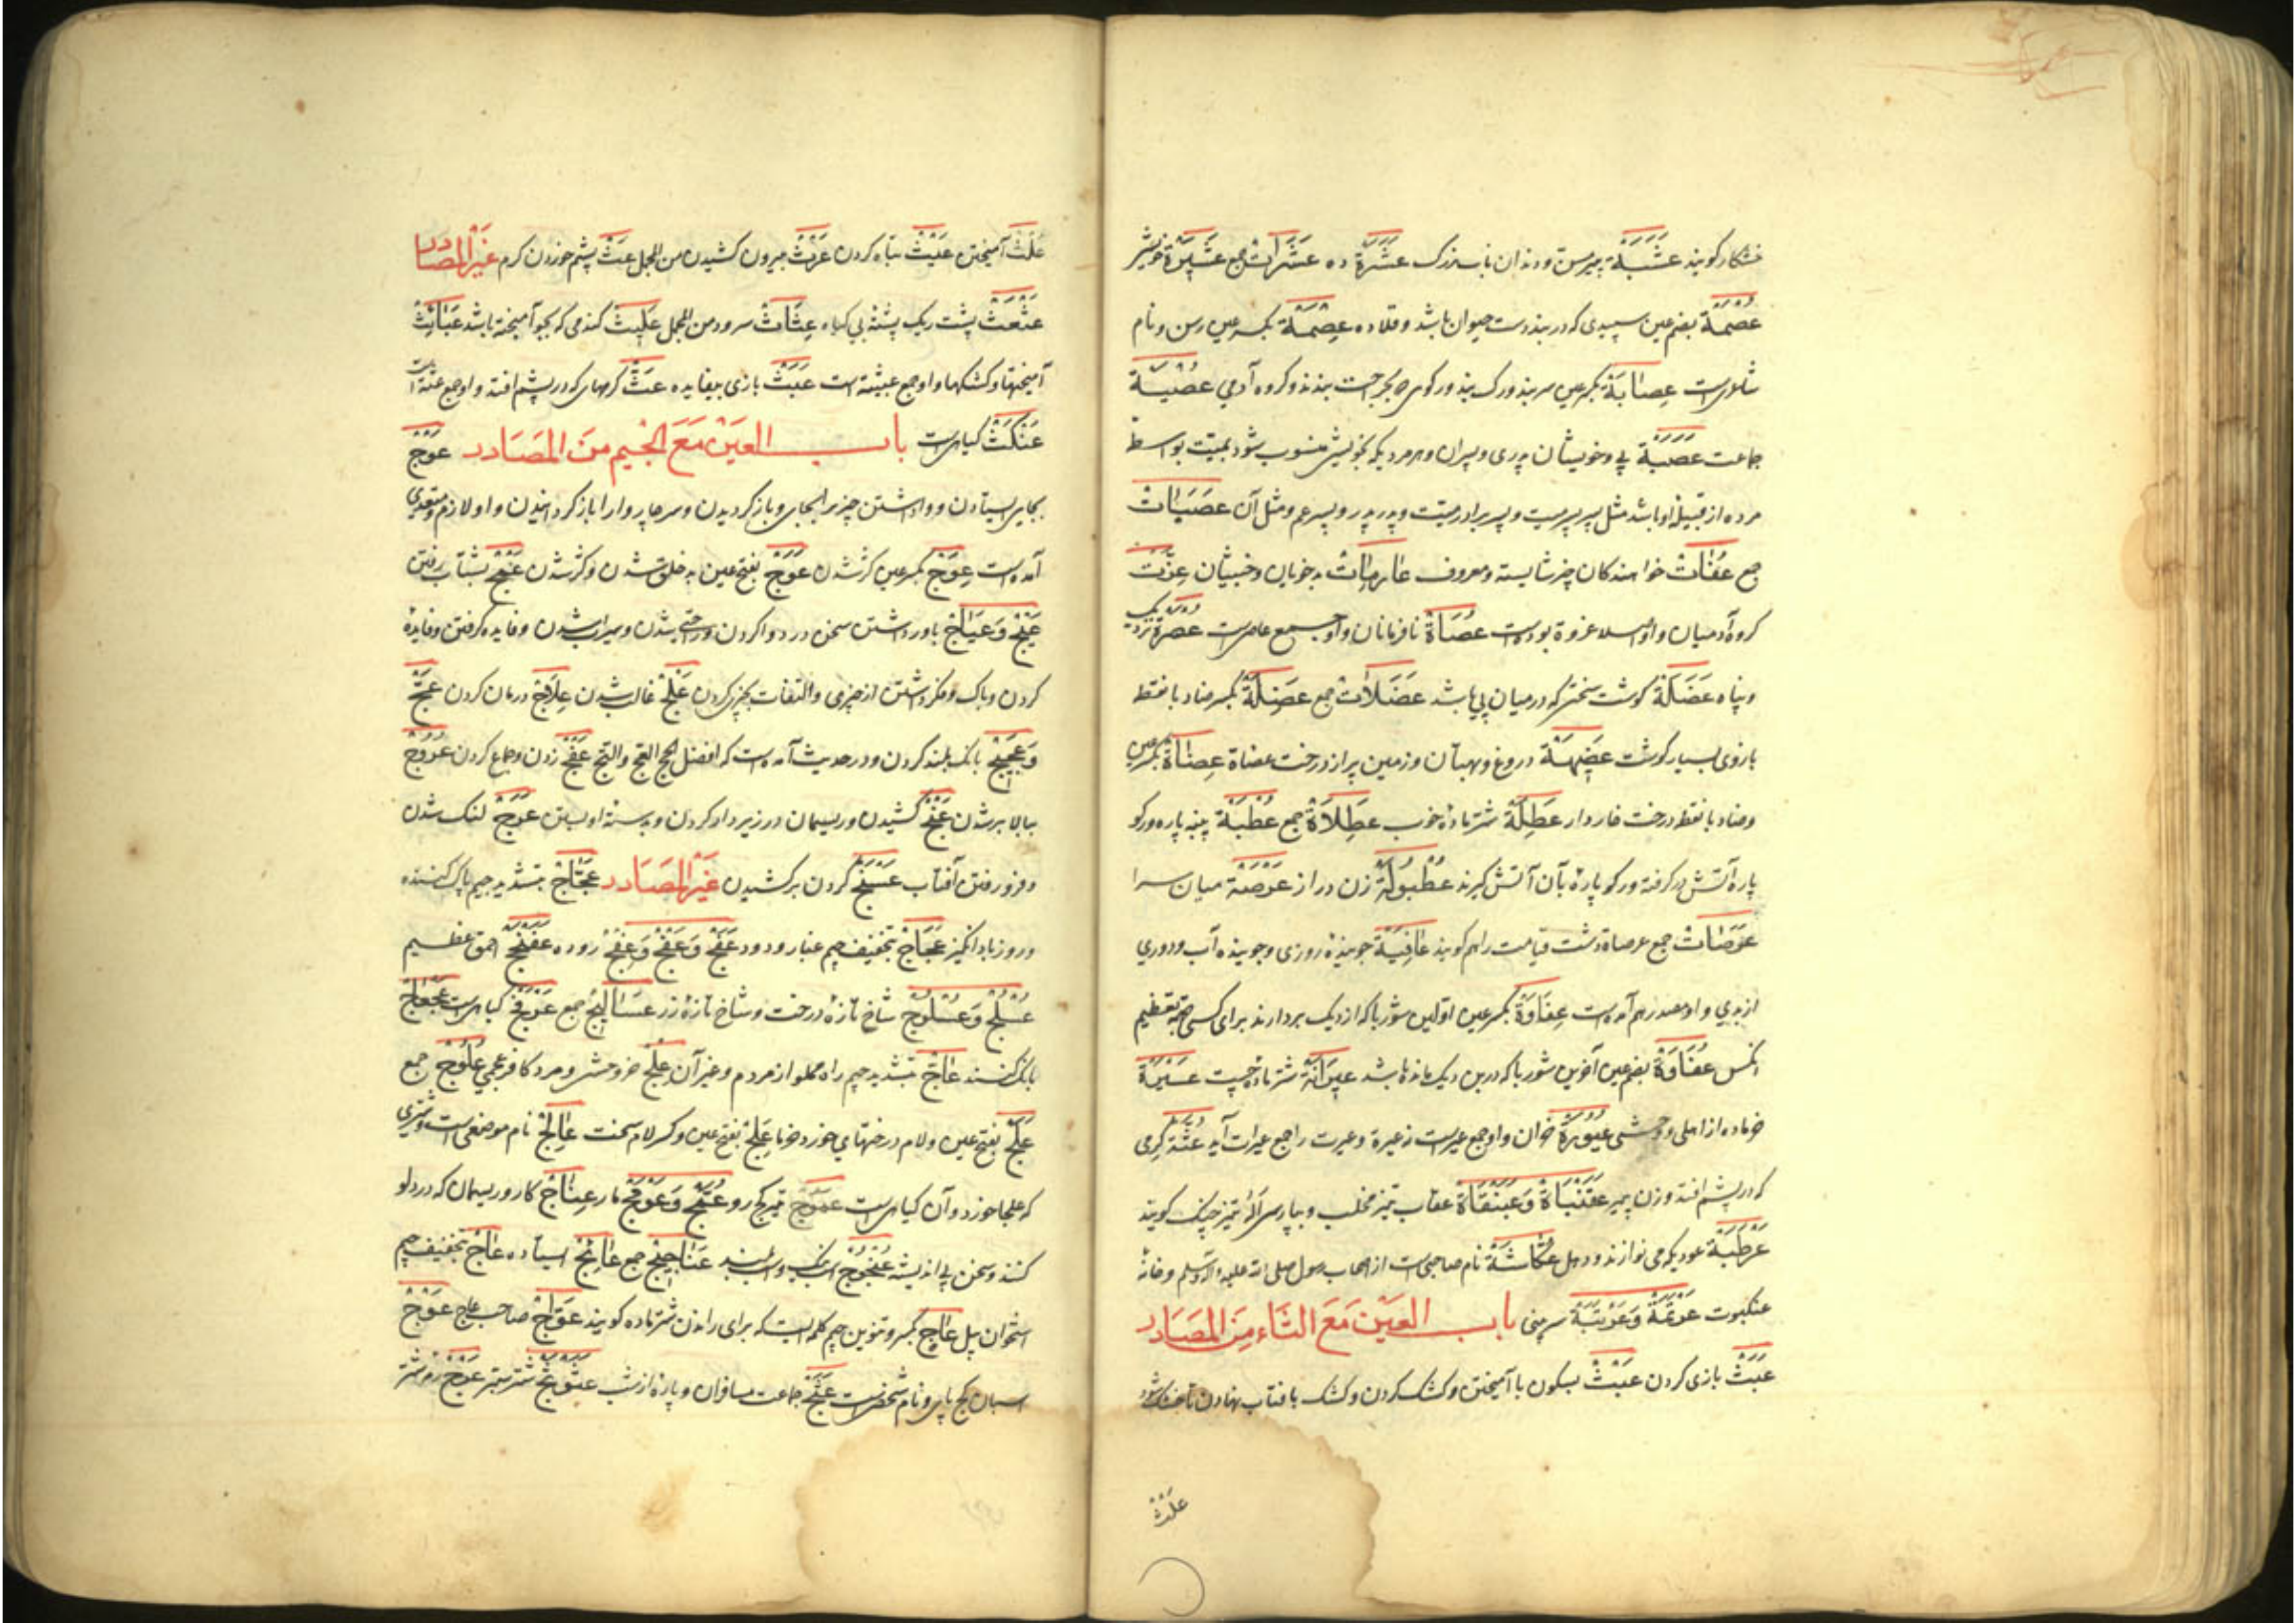 خشکار کویند عَشَبَة پیر مسن و دندان ناب بزرک عَشَرَة ده عَشَرَات جمع عَشِیرَة خویش
عُصْمَة بضم عین سپیدی که در بند دست حیوان باشد و قلاده عِصْمَة بکسر عین رسن و نام
شاعریست عِصَابَة بکسر عین سربند و رک بند و رکوی که بر جراحت بندند و کروه آدمی
جماعت عَصَبَة پی و خویشان پدری و پسران و هر مردی که بخویشی منسوب شود بمیت بواسطهٔ
مرده از قبیلهٔ او باشد مثل پسر پسر میت و پسر برادر میت و پدر پدر و پسر عم و مثل آن عصبَات
جمع عُفَاتْ خواهندکان چیز شایسته و معروف عَاهِرَات بدخویان و خبیثان
کروه آدمیان و او در اصل عزوة بوده است عُصَاة نافرمانان و او جمع عاصی است عصرَة نزدیک
و پناه عَضَلَة کوشت سخت که در میان پی باشد عَضَلَات جمع عَضِلَة بکسر ضاد با نقطه
بازوی بسیار کوشت عَضِیهَة دروغ و بهتان و زمین پر از درخت عضاة عِضَاة بکسر عین
و ضاد با نقطه درخت خاردار عَطِلَة شتر مادهٔ خوب عَطِلَاة جمع عُطْبَة پنبه پاره و رکو
پارهٔ آتش در کرفته و رکو پارهٔ که بآن آتش کیرند عُطْبُولَة زن دراز عَرْصَة میان سرا
عَرَصَات جمع عرصاة دشت قیامت را هم کویند عَافِیَة جویندهٔ روزی و جوینده آب و دوری
از بدی و او مصدر هم آمده است عِفَاوَة بکسر عین اولین شوربا که از دیک بردارند برای کسی جهة تعظیم
آنکس عُفَاوَة بضم عین آخرین شوربا که در بن دیک مانده باشد عَیرَانَة شتر مادهٔ چست
خر ماده از اهلی و وحشی عُیُورَة خران و او جمع عیر است عُثَّة کرمی
که در پشم افتد و زن پیر عَقَنْبَاة وَ عَبَنْقَاة عقاب تیز مخلب و بپارسی آله تیز چنک کویند
عَرْطَبَة عودی که می نوازند و دهل عُکَّاشَة نام صاحبی است از اصحاب رسول صلی الله علیه و آله و سلم و خانهٔ
عنکبوت عَرْتَمَة وَ عَرْتَبَة سر بینی باب العَیْن مَعَ الثَّاء مِنَ المَصَادر
عَبَثْ بازی کردن عَبْثْ بسکون با آمیختن و کشک کردن و کشک بافتاب نهادن تا خشک شود
علث
عَلْثْ آمیختن عَیْثْ تباه کردن عَرْثْ بیرون کشیدن من المجمل عَثّ پشم خوردن کرم غَیْر المصَادر
عَثْعَثْ پشت ریک پشتهٔ بی کیاه عِثَاثْ سرود من المجمل عَلِیثْ کندمی که بجو آمیخته باشد عَبَائِثْ
آمیختها و کشکها و او جمع عبیثة است عَبَثْ بازی بیفایده عَثّ کرمهایی که در پشم افتد و او جمع عثة است
عَنْکَثْ کیاهیست باب العَیْن مَعَ الجِیم مِنَ المَصَادر عَوْجْ
بجایی ایستادن و واداشتن چیزی را بجایی و باز کردیدن و سر چاروا را باز کردانیدن و او لازم و متعدی
آمده است عِوَجْ بکسر عین کژ شدن عَوَجْ بفتح عین بد خلق شدن و کژ شدن عَنْجْ بشتاب رفتن
عَیْجْ وَ عَیَاجْ باور داشتن سخن و در دوا کردن و راضی شدن و سیراب شدن و فایده کرفتن و فایدهٔ
کردن و باک و فکر داشتن از چیزی و التفات بچیزی کردن عَلْجْ غالب شدن عِلَاجْ درمان کردن عَجّ
وَ عَجِیجْ بانک بلند کردن و در حدیث آمده است که افضل الحج العج و الثج عَفْجْ زدن و جماع کردن عُرُوجْ
ببالا بر شدن عَنْجْ کشیدن و ریسمان در زیر دلو کردن و بدسته او بستن عَرَجْ لنک شدن
و فرو رفتن آفتاب عَسْجْ کردن برکشیدن غَیْر المَصَادر عَجَّاجْ بتشدید جیم بانک کننده
و روز باد انکیز عَجَاجْ بتخفیف جیم غبار و دود عَفْجْ وَ عَفَجْ وَ عِفْجْ روده عَفَنْجَجْ احمق عظیم
عُسْلُجْ وَ عُسْلُوجْ شاخ تازهٔ درخت و شاخ تازهٔ زر عَسَالِیجْ جمع عَرْفَجْ کیاهیست عَجْعَاجْ
بانک کننده عَاجّ بتشدید جیم راه مملو از مردم و غیر آن عِلْجْ خر وحشی و مرد کافر عجمی عُلُوجْ جمع
عَلَجْ بفتح عین و لام درختهای خورد خرما عَلِجْ بفتح عین و کسر لام سخت عَالِجْ نام موضعی است و شتری
که علجا خورد و آن کیاهیست عَمُوجْ تیر کج رو عُمَّجْ وَ عَوْمَجْ مار عِنَاجْ کار و ریسمان که در دلو
کنند و سخن بی اندیشه عُنْجُوجْ اسب نیک و اسب بلند عَنَاجِیجْ جمع عَائِجْ ایستاده عَاجْ بتخفیف جیم
استخوان پیل عَاجِ بکسر و تنوین جیم کلمه ایست که برای راندن شتر ماده کویند عَوَّاجْ صاحب عاج عَوْجْ
اسبان کج پای و نام شخصیست عَثْجْ جماعت مسافران و پارهٔ از شب عَثَوْثَجْ شتر ستبر